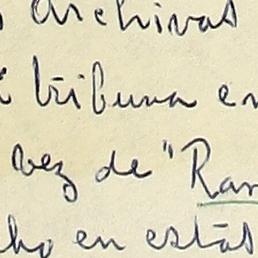 archivas
tribuna en
vez de "Ran
ho en estás